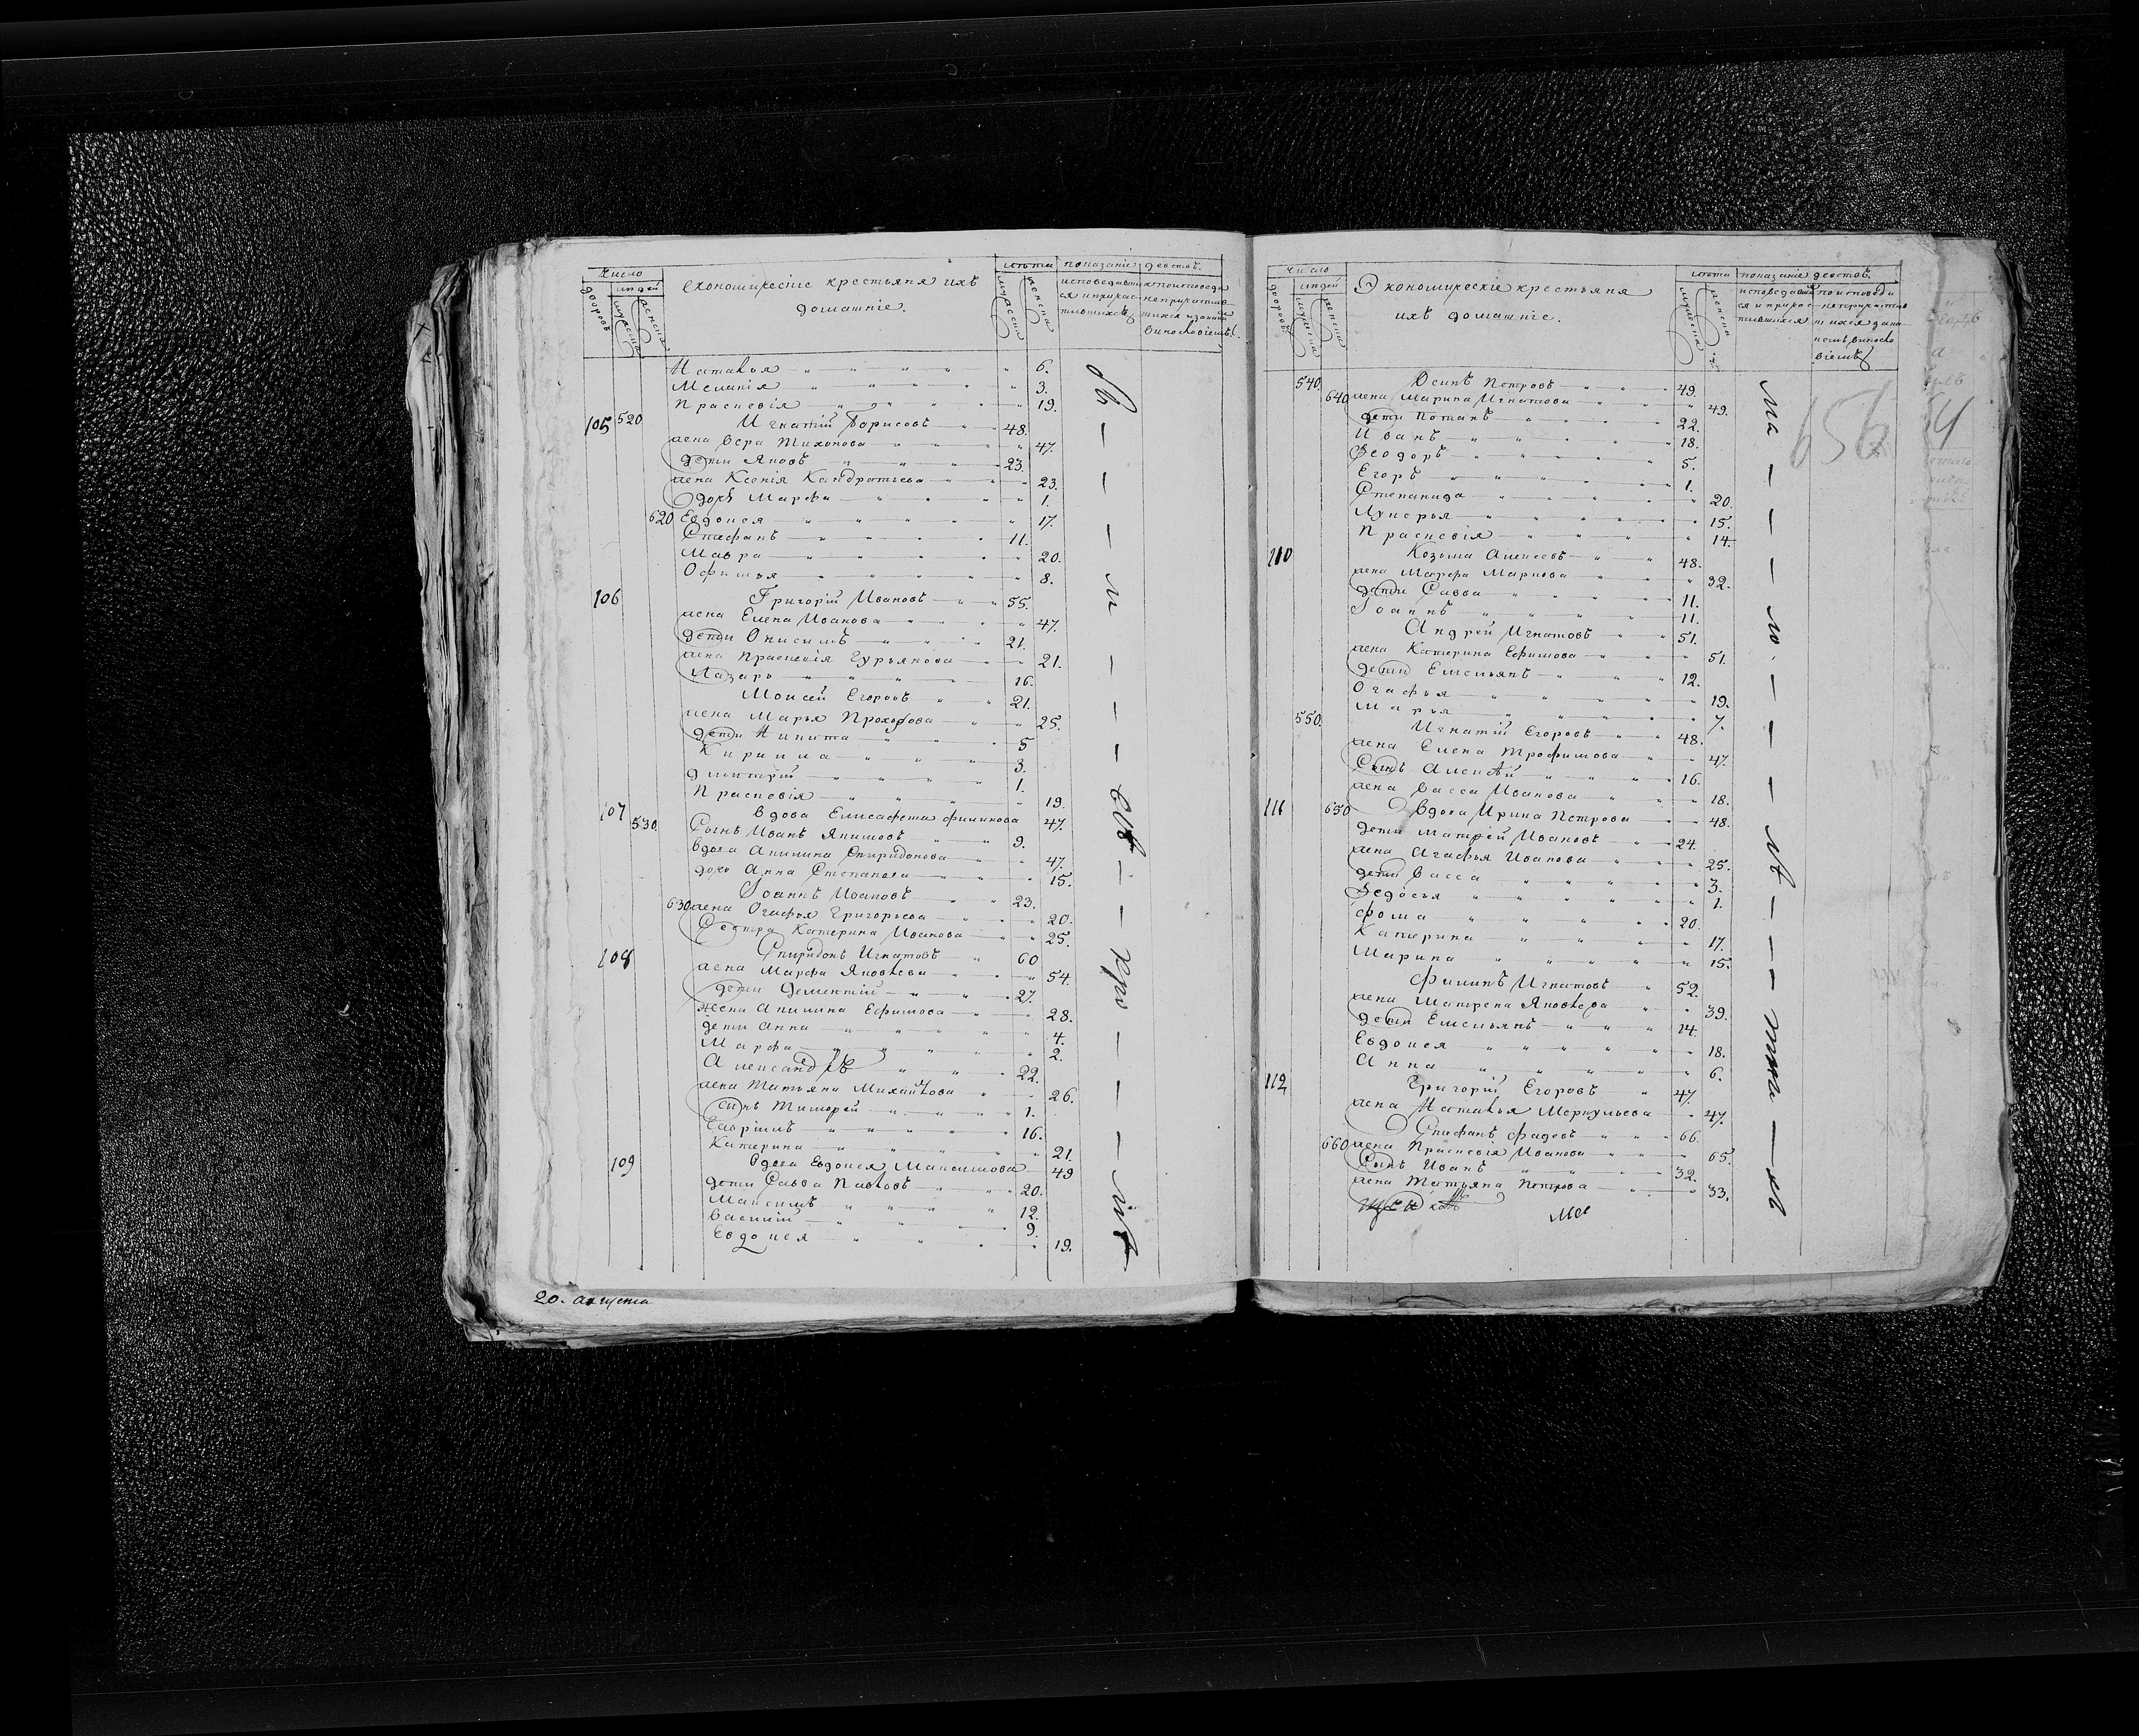 Число
людей
дворовъ
мужеска
женска
Економическіе крестьяня ихъ
домашніе.
лѣта
мужеска
женска
показаніе действ.
исповедавши
ся и приобщ
тившихсѣ
Наталья 6.
Меланія 3.
Прасковія 19.
105 520 Игнатій Борисовъ 48.
жена Вера Тихонова 47.
дети Яковъ 23.
жена Ксенія Кандратьева 23.
дочь Марфа 1.
620 Евдокея 17.
Стефанъ 11.
Мавра 20.
Офимья 8.
106 Григорій Ивановъ 55.
жена Елена Иванова 47.
дети Онисимъ 21.
жена Прасковія Гурьянова 21.
Лазарь 16.
Моисей Егоровъ 21.
жена Марья Прохорова 25.
дети Никита 5
Кирилла 3.
Дмитрій 1.
Прасковія 19.
107 вдова Елисафета Филипова 47.
530. Сынъ Иванъ Якимовъ 9.
вдова Акилина Спиридонова 47.
дочь Анна Степанова 15.
Іоаннъ Ивановъ 23.
630 жена Огафья Григорьева 20.
Сестра Катерина Иванова 25.
108 Спиридонъ Игнатовъ 60
жена Марфа Яковлева 54.
дети Дементій 27.
жена Акилина Ефимова 28.
дети Анна 4.
Марфа 2.
Александръ 22.
жена Татьяна Михайлова 26.
сынъ Тимофей 1.
Гавріилъ 16.
Катерина 21.
109 Вдова Евдокея Максимова 49
дети Савва Павловъ 20.
Максимъ 12.
Василій 9.
Евдокея 19.
20. августа
Число
людей
дворовъ
мужеска
женска
Экономическіе крестьяня
ихъ домашніе.
лѣта
мужеска
показаніе действ.
540. Осипъ Петровъ 49.
640 жена Марина Игнатова 49.
дети Потапъ 22.
Иванъ 18.
Феодоръ 5.
Егоръ 1.
Степанида 20.
Лукерья 15.
Прасковія 14.
110 Козьма Алексеевъ 48.
жена Марфа Маркова 32.
дети Савва 11.
Іоаннъ 11.
Андрей Игнатовъ 51.
жена Катерина Ефимова 51.
дети Емельянъ 12.
Огафья 19.
Марья 7.
550. Игнатій Егоровъ 48.
жена Елена Трофимова 47.
Сынъ Алексѣй 16.
жена Васса Иванова 18.
111 650 Вдова Ирина Петрова 48.
дети Матфей Ивановъ 24.
жена Агафья Иванова 25.
дети Васса 3.
Федосья 1.
Фома 20.
Катерина 17.
Марина 15.
Филипъ Игнатовъ 52.
жена Матрена Яковлева 39.
дети Емельянъ 14.
Евдокея 18.
Анна 6.
112 Григорій Егоровъ 47.
жена Наталья Меркульева 47.
Стефанъ Фадеевъ 66.
660 жена Прасковія Иванова 65.
Сынъ Иванъ 32.
жена Татьяна Петрова 33.
656